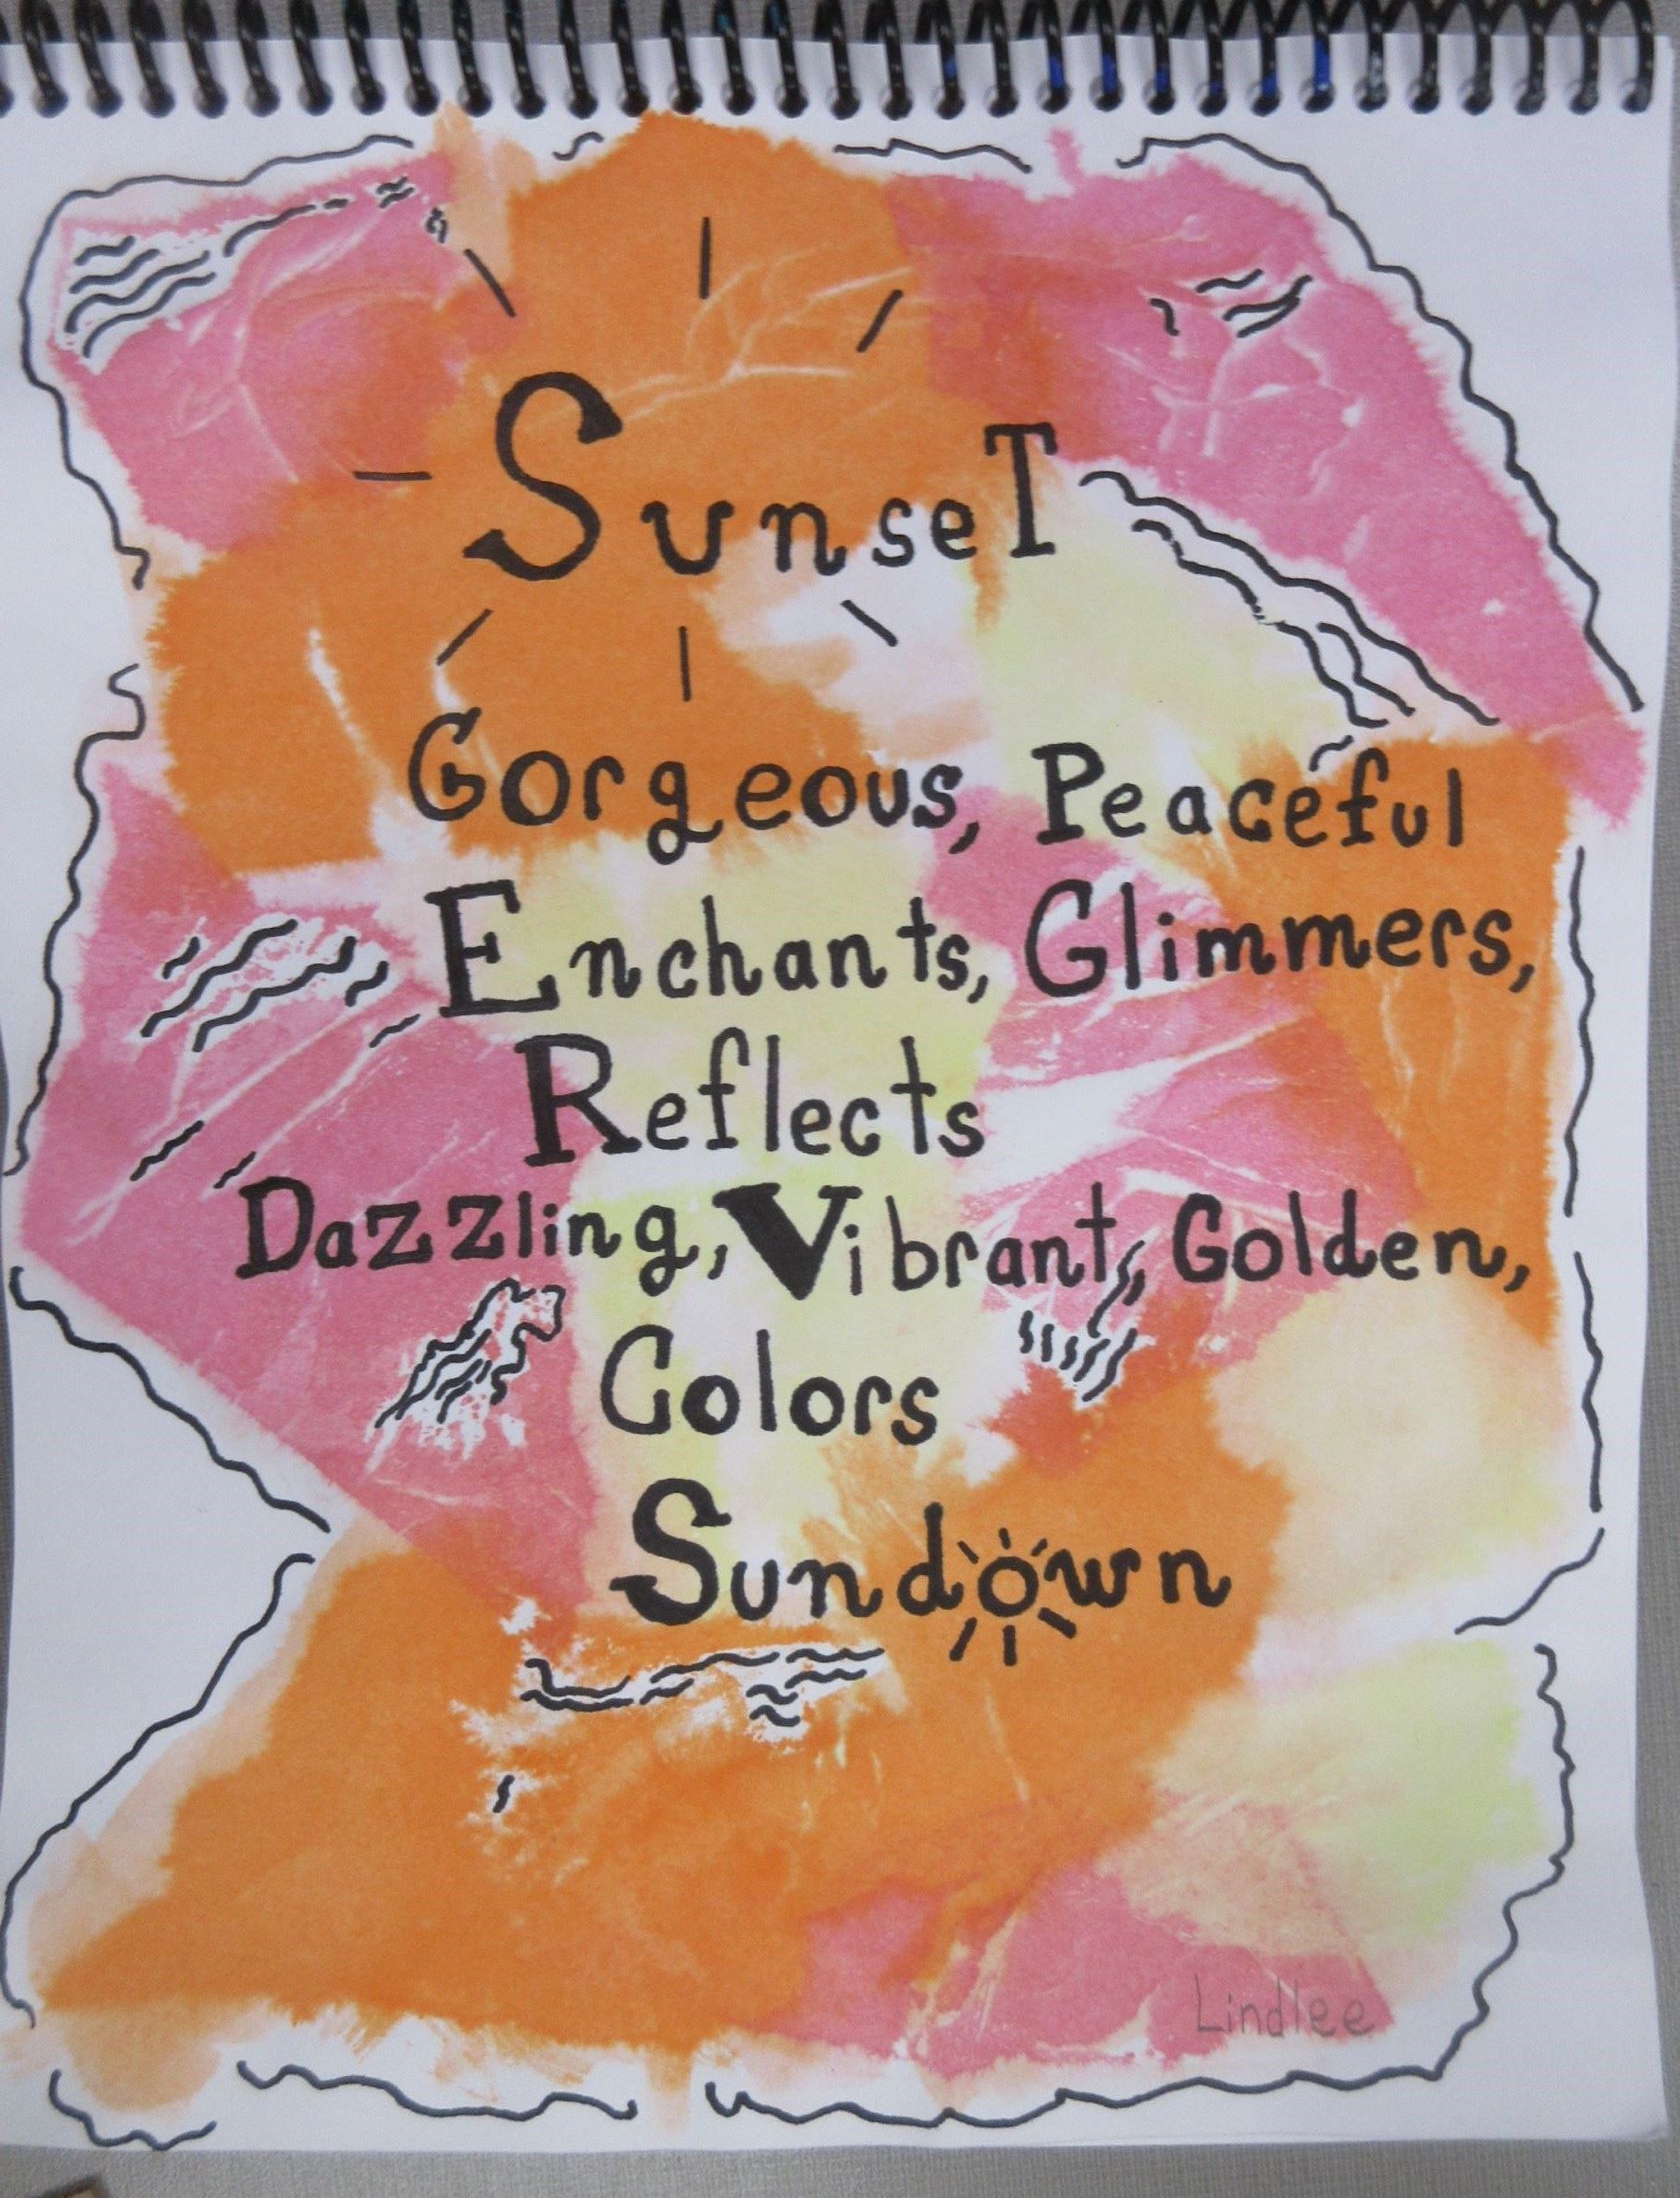 SunseT
Gorgeous, Peaceful
Enchants, Glimmers,
Reflects
Dazzling, Vibrant, Golden,
Colors
Sundown
Lindlee